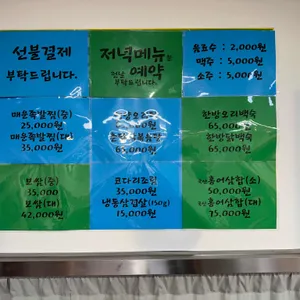 선불결제
부탁드립니다.
저녁메뉴는
전날 예약
부탁드립니다.
음료수 : 2,000원
맥주 : 5,000원
소주 : 5,000원
매운족발찜(중)
25,000원
매운족발찜(대)
35,000원
65,000원
한방오리백숙
65,000원
한방닭백숙
65,000원
보쌈(중)
35,000
보쌈(대)
42,000원
코다리조림
35,000원
냉동삼겹살(150g)
15,000원
홍어삼합(소)
50,000원
홍어삼합(대)
75,000원